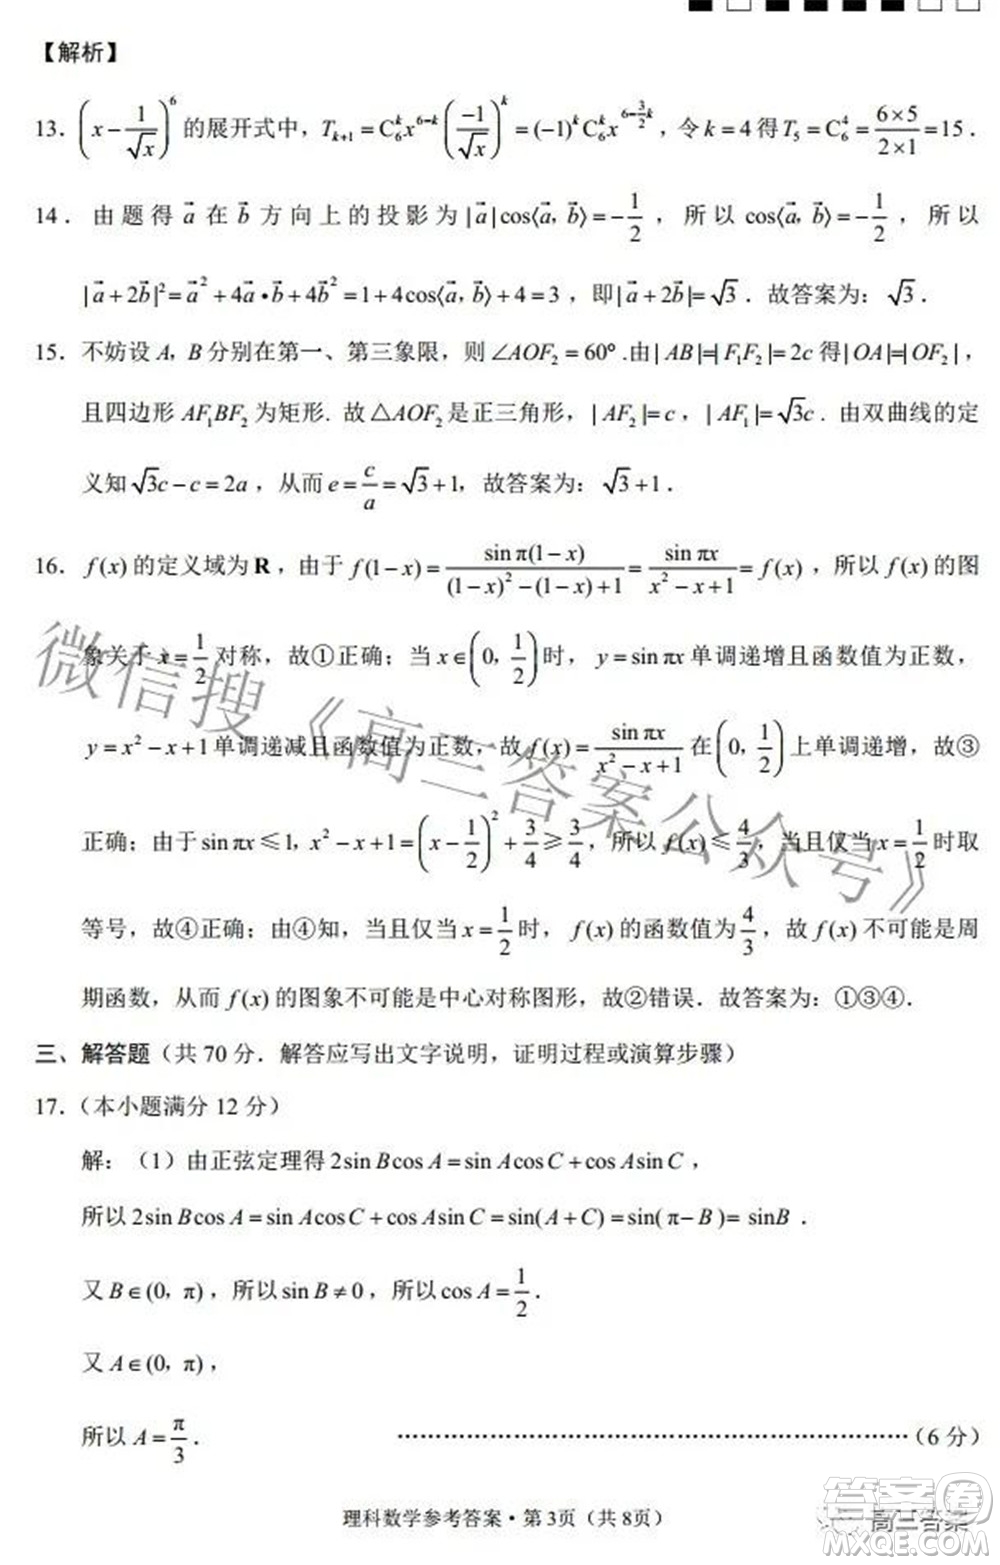 【解析】
13．(x－1/√x)^6 的展开式中，T_{k+1}＝C_6^k x^{6-k} (－1/√x)^k＝(－1)^k C_6^k x^{6-(3/2)k}，令 k＝4 得 T_5＝C_6^4＝(6×5)/(2×1)＝15．
14．由题得 a⃗ 在 b⃗ 方向上的投影为 |a⃗|cos⟨a⃗，b⃗⟩＝－1/2，所以 cos⟨a⃗，b⃗⟩＝－1/2，所以
|a⃗＋2b⃗|²＝a⃗²＋4a⃗•b⃗＋4b⃗²＝1＋4cos⟨a⃗，b⃗⟩＋4＝3，即|a⃗＋2b⃗|＝√3．故答案为：√3．
15．不妨设 A，B 分别在第一、第三象限，则∠AOF₂＝60°.由|AB|＝|F₁F₂|＝2c 得|OA|＝|OF₂|，
且四边形 AF₁BF₂ 为矩形. 故△AOF₂ 是正三角形，|AF₂|＝c，|AF₁|＝√3c．由双曲线的定
义知√3c－c＝2a，从而 e＝c/a＝√3＋1，故答案为：√3＋1．
16．f(x) 的定义域为 R，由于 f(1－x)＝sin π(1－x)/((1－x)²－(1－x)＋1)＝sin πx/(x²－x＋1)＝f(x)，所以 f(x) 的图
象关于 x＝1/2 对称，故①正确；当 x∈(0，1/2) 时，y＝sin πx 单调递增且函数值为正数，
y＝x²－x＋1 单调递减且函数值为正数，故 f(x)＝sin πx/(x²－x＋1) 在 (0，1/2) 上单调递增，故③
正确；由于 sin πx≤1，x²－x＋1＝(x－1/2)²＋3/4≥3/4，所以 f(x)≤4/3，当且仅当 x＝1/2 时取
等号，故④正确；由④知，当且仅当 x＝1/2 时，f(x) 的函数值为 4/3，故 f(x) 不可能是周
期函数，从而 f(x) 的图象不可能是中心对称图形，故②错误．故答案为：①③④．
三、解答题（共 70 分．解答应写出文字说明，证明过程或演算步骤）
17．（本小题满分 12 分）
解：（1）由正弦定理得 2sin B cos A＝sin A cos C＋cos A sin C，
所以 2sin B cos A＝sin A cos C＋cos A sin C＝sin(A＋C)＝sin(π－B)＝sin B．
又 B∈(0，π)，所以 sin B≠0，所以 cos A＝1/2．
又 A∈(0，π)，
所以 A＝π/3．…………………………………………………………（6 分）
理科数学参考答案·第 3页（共 8页）
微信搜《高三答案公众号》
高三答案
答案圈
MXQE.COM